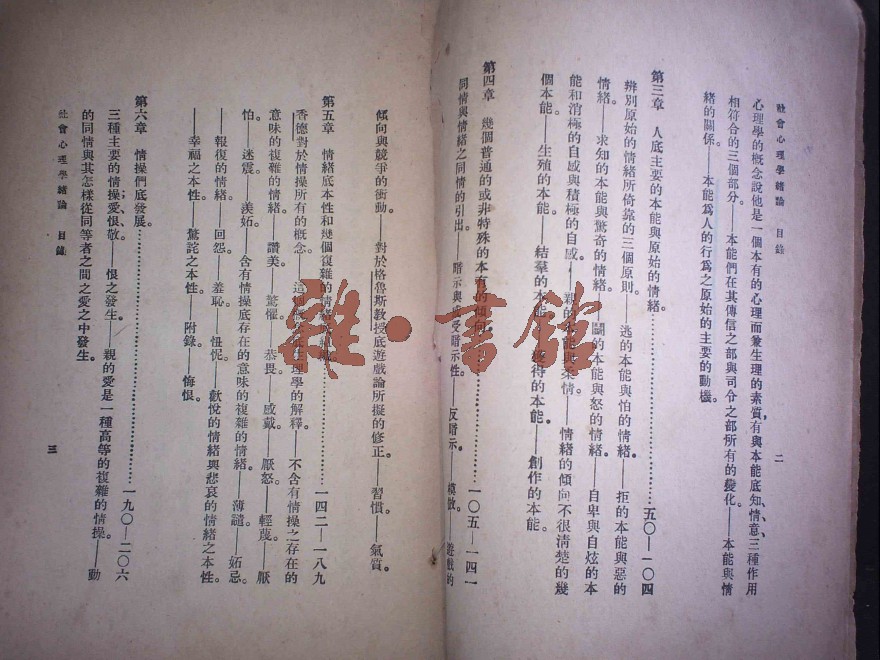 社會心理學緒論 目錄
二
心理學的概念說他是一個本有的心理而兼生理的素質，有與本能底知、情、意、三種作用
相符合的三個部分。——本能們在其傳信之部與司令之部所有的變化。——本能與情
緒的關係。——本能爲人的行爲之原始的主要的動機。
第三章 人底主要的本能與原始的情緒。…………五〇—一〇四
辨別原始的情緒所倚靠的三個原則。——逃的本能與怕的情緒。——拒的本能與惡的
情緒。——求知的本能與驚奇的情緒。——鬭的本能與怒的情緒。——自卑與自炫的本
能和消極的自感與積極的自感。——親的本能與柔情。——情緒的傾向不很清楚的幾
個本能。——生殖的本能。——結羣的本能。——獲得的本能。——創作的本能。
第四章 幾個普通的或非特殊的本有的傾向。…………一〇五—一四一
同情與情緒之同情的引出。——暗示與感受暗示性。——反暗示。——模倣。——遊戲的
傾向與競爭的衝動。——對於格魯斯教授底遊戲論所擬的修正。——習慣。——氣質。
第五章 情緒底本性和幾個複雜的情緒…………一四二—一八九
香德對於情操所有的概念。——這個概念底生理學的解釋。——不含有情操之存在的
意味的複雜的情緒。——讚美。——驚懼。——恭畏。——感戴。——厭怒。——輕蔑。——厭
怕。——迷震。——羨妬。——含有情操底存在的意味的複雜的情緒。——薄譴。——妬忌。
——報復的情緒。——回怨。——羞恥。——忸怩。——歡悅的情緒與悲哀的情緒之本性。
——幸福之本性。——驚詫之本性。——附錄。——悔恨。
第六章 情操們底發展。…………一九〇—二〇六
三種主要的情操，愛、恨、敬。——恨之發生。——親的愛是一種高等的複雜的情操。——動
的同情與其怎樣從同等者之間之愛之中發生。
社會心理學緒論 目錄
三
雜·書館